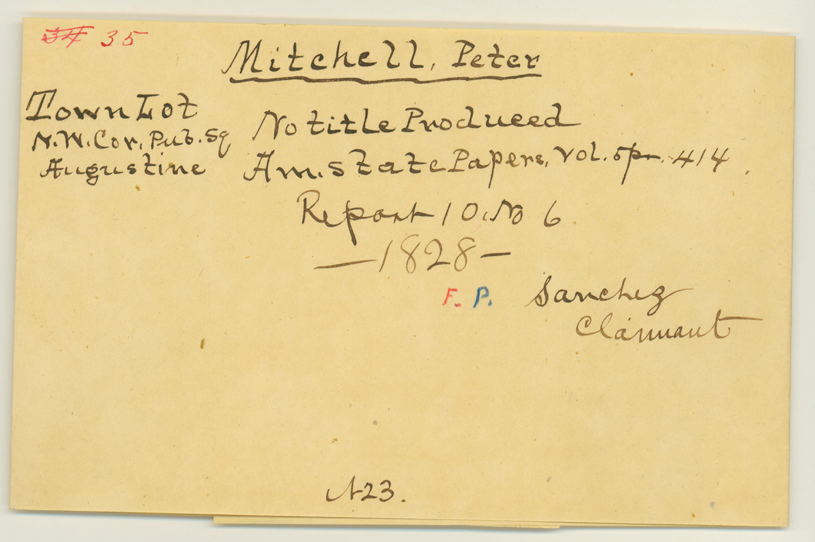 34 35
Mitchell, Peter
Town Lot
N.W. Cor. Pub. Sq
Augustine
No title Produced
Am. State Papers, Vol. 5 p. 414.
Report 10, No 6
— 1828 —
F. P. Sanchez
Claimant
N23.